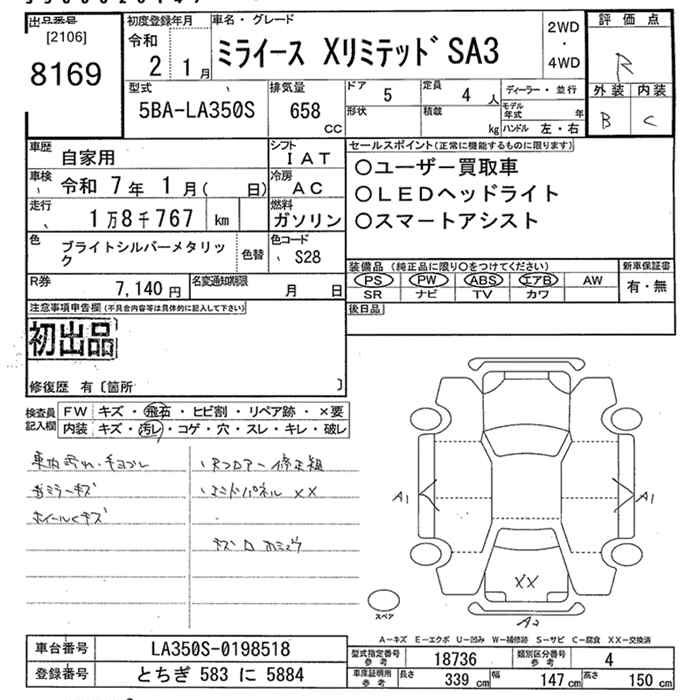 出品番号
[2106]
8169
初度登録年月
令和
2 1月
車名・グレード
ミライース XリミテッドSA3
2WD
・
4WD
評価点
R
外装 内装
B C
型式
5BA-LA350S
排気量
658
CC
ドア 5
定員 4 人
形状
積載 kg
ディーラー・並行
モデル年式 年
ハンドル 左・右
車歴 自家用
シフト IAT
車検 令和 7年 1月( 日)
冷房 AC
走行 1万8千767 km
燃料 ガソリン
色 ブライトシルバーメタリック
色替
色コード S28
R券 7,140円
名変通知期限 月 日
セールスポイント(正常に機能するものに限ります)
○ユーザー買取車
○LEDヘッドライト
○スマートアシスト
装備品 (純正品に限り○をつけてください)
PS PW ABS エアB AW
SR ナビ TV カワ
新車保証書
有・無
後日品
注意事項申告欄(不具合内容等は具体的に記入して下さい)
初出品
修復歴 有〔箇所 〕
検査員記入欄
FW キズ・飛石・ヒビ割・リペア跡・×要
内装 キズ・汚レ・コゲ・穴・スレ・キレ・破レ
ホイールキズ
A1 A1
XX
A2
スペア
A−キズ E−エクボ U−凹み W−補修跡 S−サビ C−腐食 XX−交換済
車台番号 LA350S-0198518
登録番号 とちぎ 583 に 5884
型式指定番号 参考 18736
類別区分番号 参考 4
車庫証明用 参考 長さ 339cm 幅 147cm 高さ 150cm